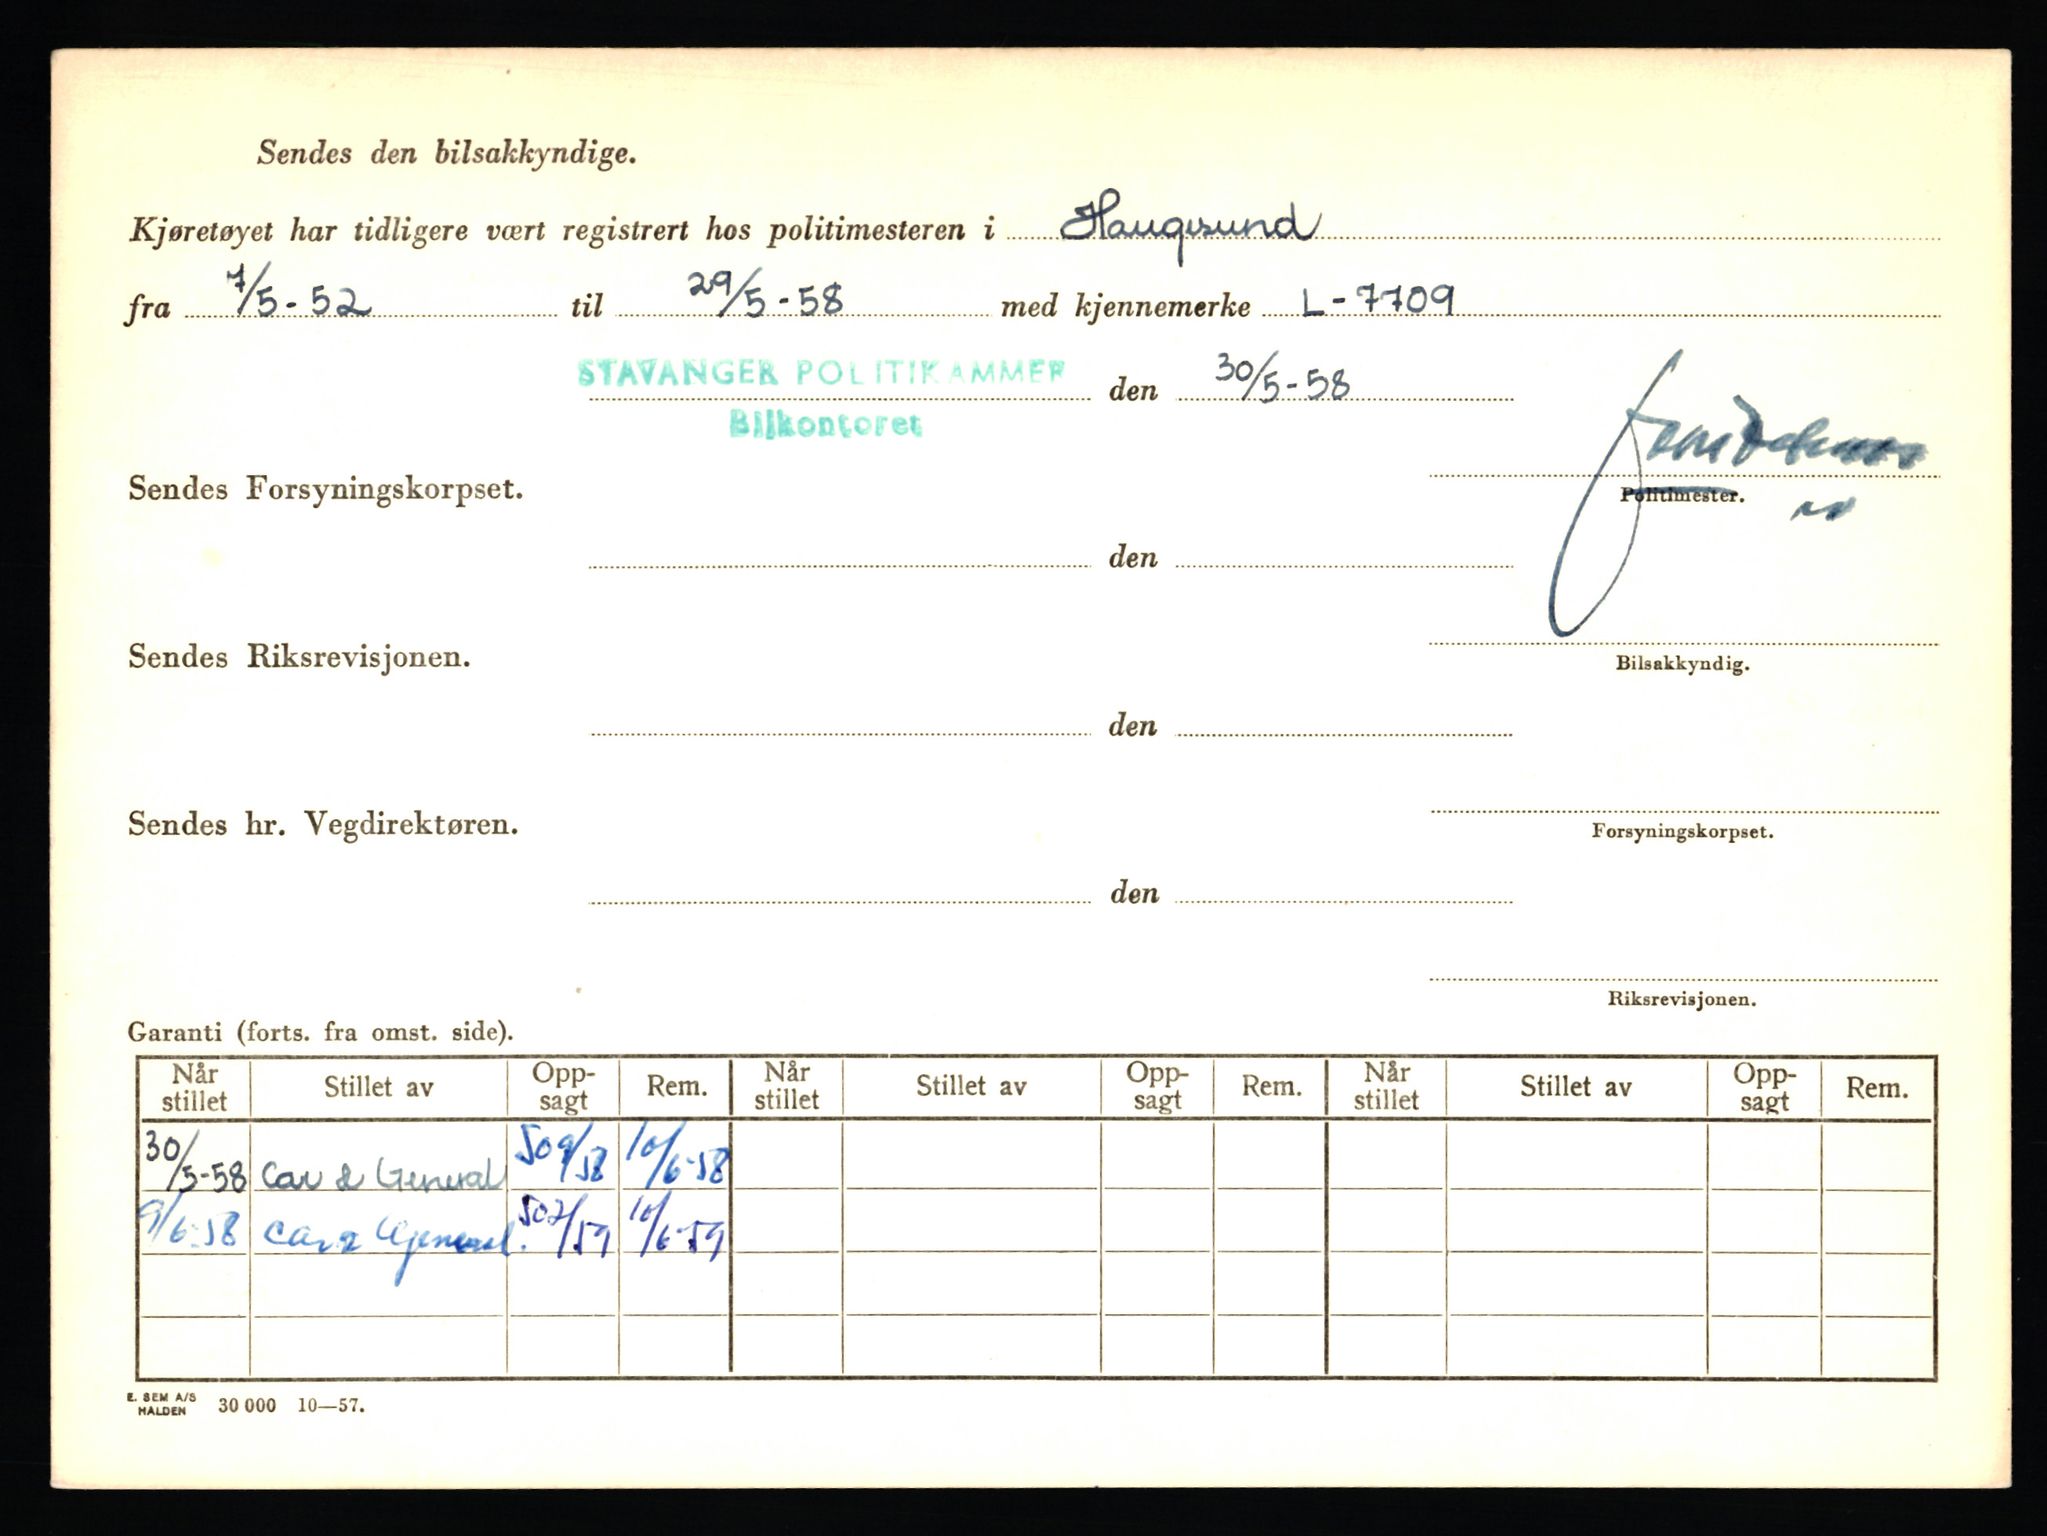 Sendes den bilsakkyndige.
Kjøretøyet har tidligere vært registrert hos politimesteren i Haugesund
fra 7/5-52 til 29/5-58 med kjennemerke L-7709
STAVANGER POLITIKAMMER den 30/5-58
Bilkontoret
Sendes Forsyningskorpset.
Politimester.
den
Sendes Riksrevisjonen.
Bilsakkyndig.
den
Sendes hr. Vegdirektøren.
Forsyningskorpset.
den
Riksrevisjonen.
Garanti (forts. fra omst. side).
Når stillet Stillet av Opp-sagt Rem. Når stillet Stillet av Opp-sagt Rem. Når stillet Stillet av Opp-sagt Rem.
30/5-58 Car & General 509/58 10/6-58
9/6-58 Car & General. 502/59 10/6-59
E. SEM A/S
HALDEN 30 000 10—57.